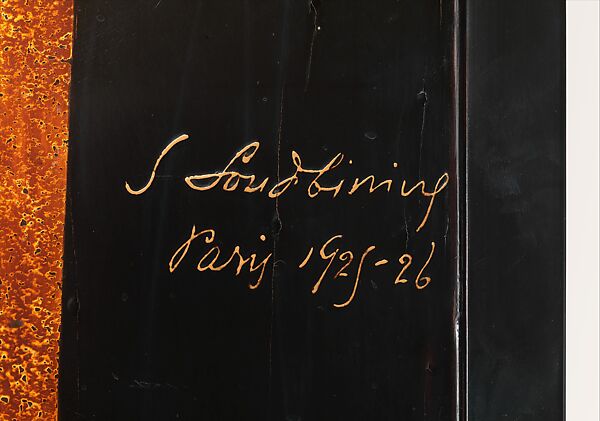 S Soudbinine
Paris 1925-26